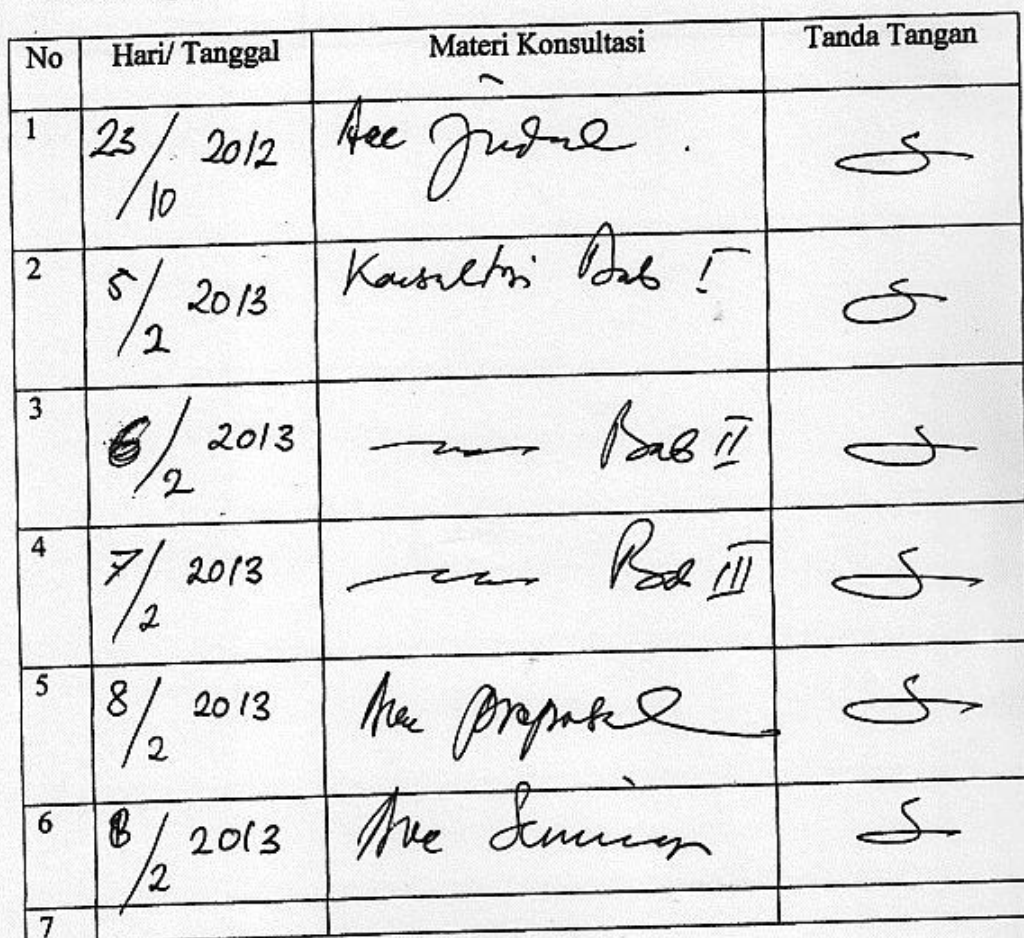 No Hari/ Tanggal Materi Konsultasi Tanda Tangan
1 23/10 2012 Acc Judul
2 5/2 2013 Konsultasi Bab I
3 6/2 2013 Bab II
4 7/2 2013 Bab III
5 8/2 2013 Acc proposal
6 8/2 2013 Acc Seminar
7